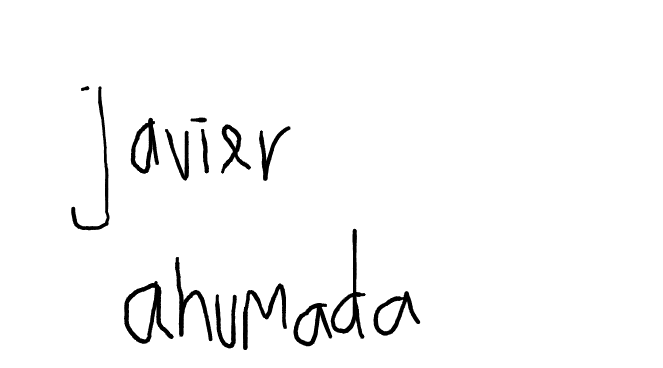 Javier
ahumada